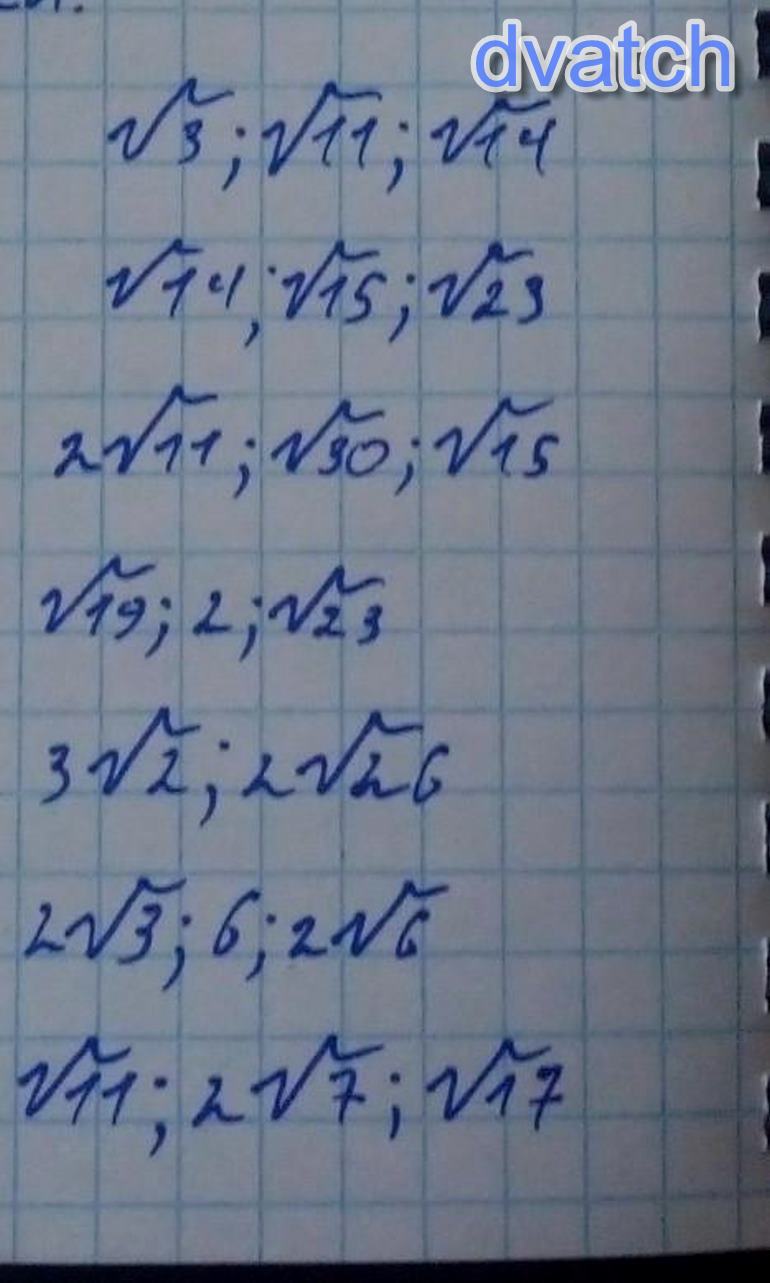 dvatch
√3; √11; √14
√14; √15; √23
2√11; √30; √15
√19; 2; √23
3√2; 2√26
2√3; 6; 2√6
√11; 2√7; √17